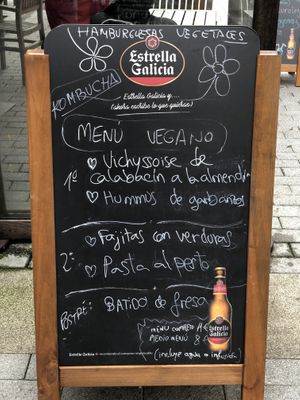 HAMBURGUESAS VEGETALES
Estrella
Galicia
KOMBUCHA
Estrella Galicia y....
(ahora escribe lo que quieras)
MENÚ VEGANO
1º
♡ Vichyssoise de
calabacín a la almendra
♡ Hummus de garbanzos
♡ Fajitas con verduras
2º
♡ Pasta al pesto
POSTRE: BATIDO de fresa
MENÚ COMPLETO
MEDIO MENÚ 8
(incluye agua o infusión)
Estrella
Galicia
Estrella Galicia